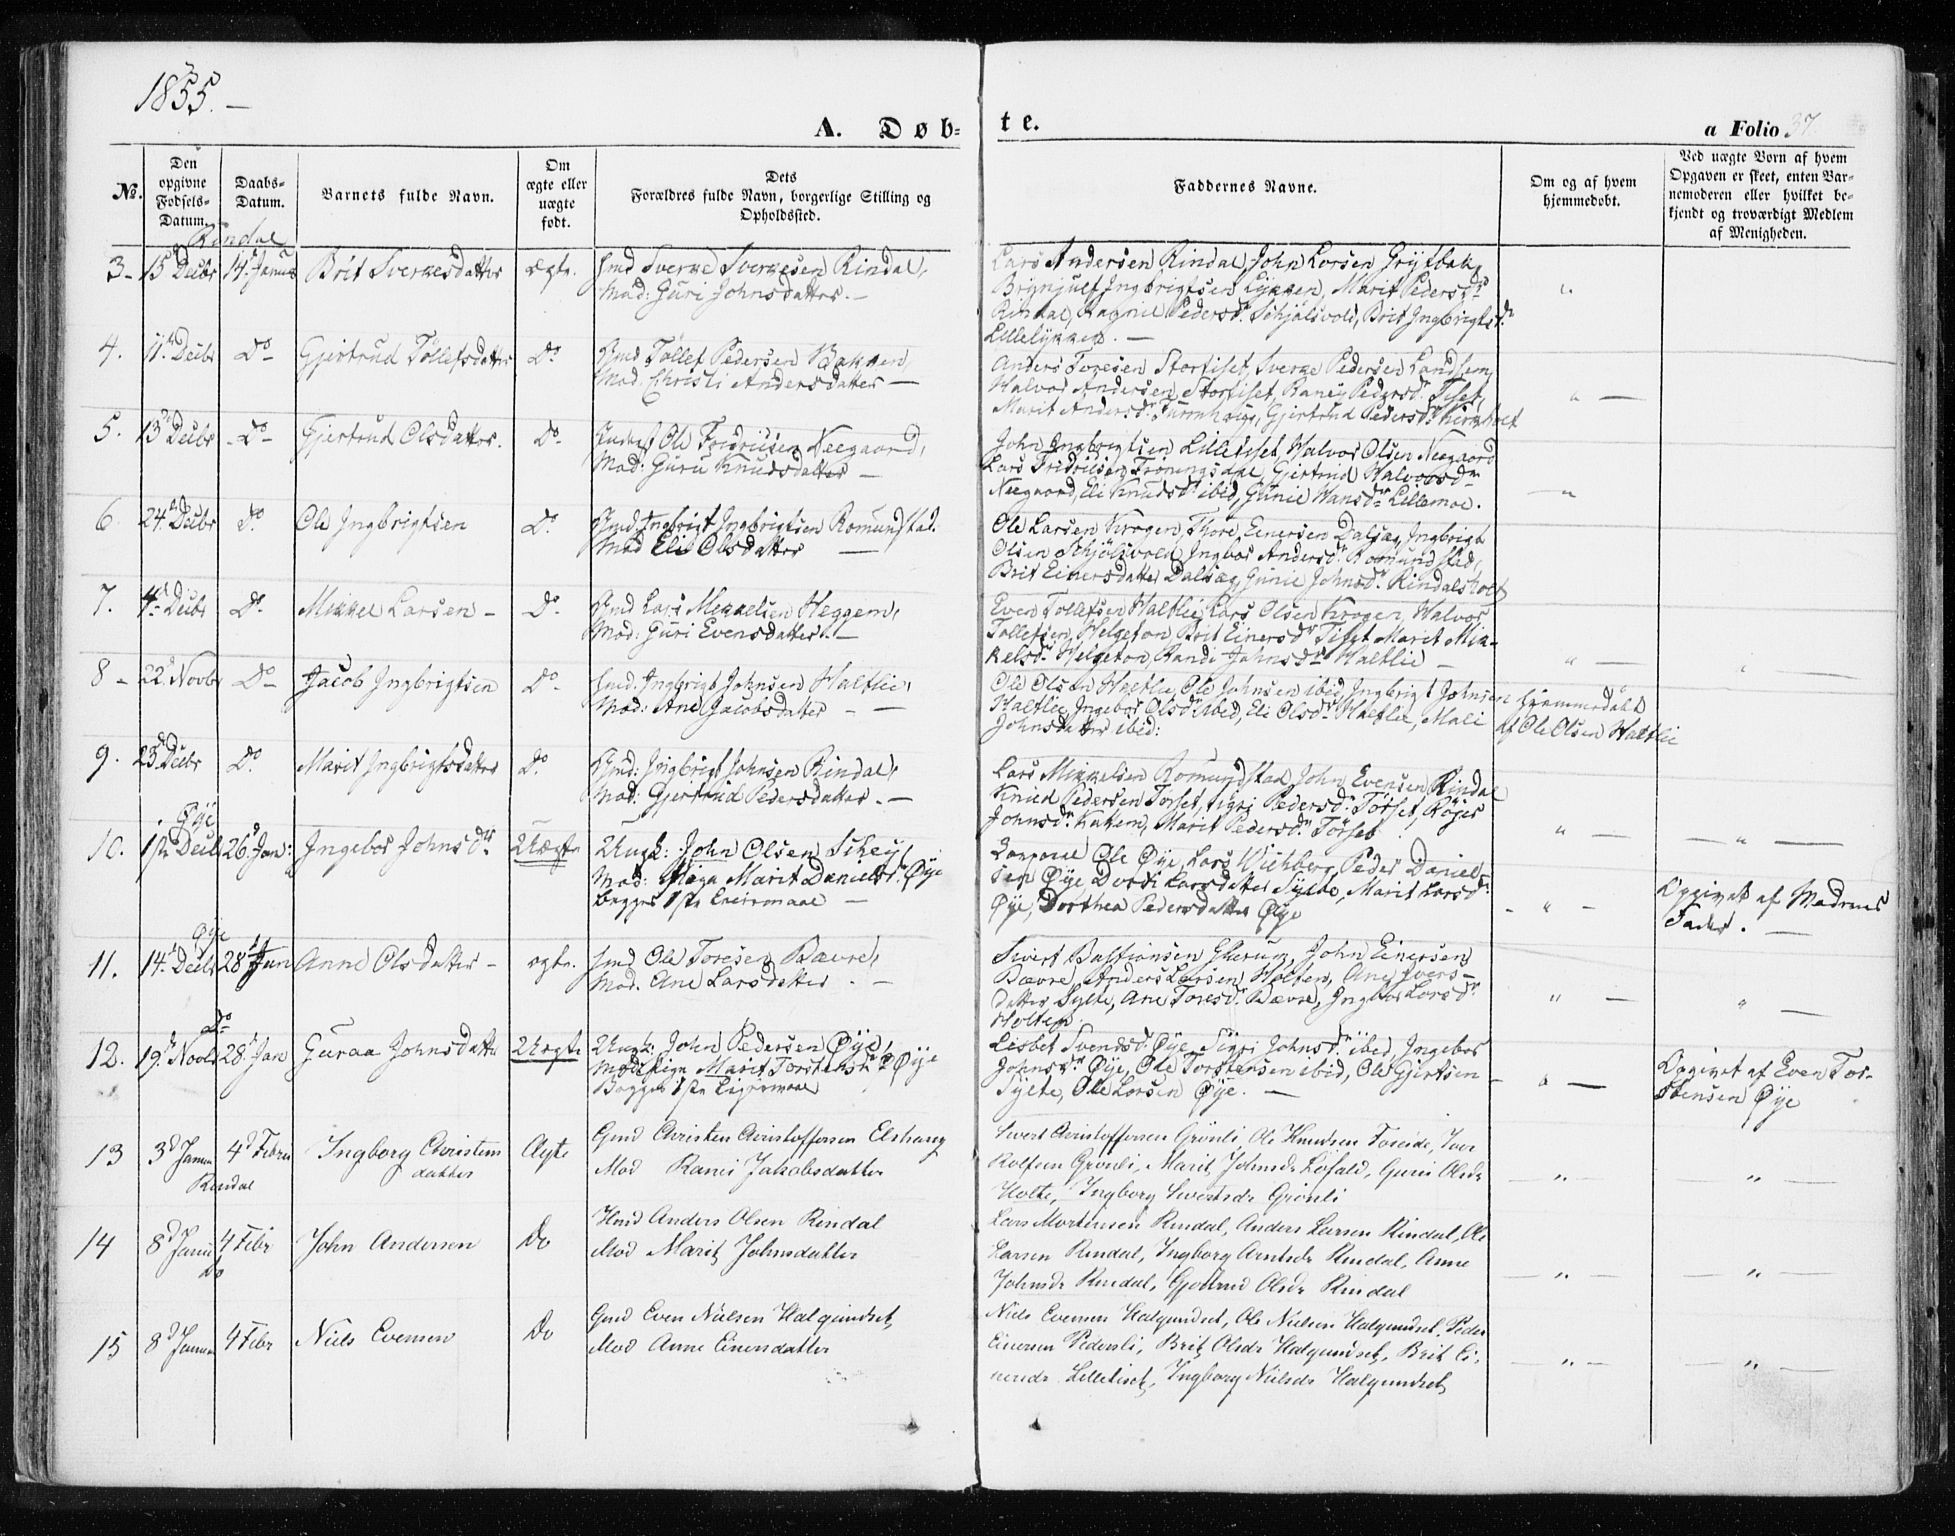 1855. —
A. Døb-
te.
a Folio 37.
№.
Den opgivne Fødsels-Datum.
Daabs-Datum.
Barnets fulde Navn.
Om ægte eller uægte født.
Dets Forældres fulde Navn, borgerlige Stilling og Opholdssted.
Faddernes Navne.
Om og af hvem hjemmedøbt.
Ved uægte Born af hvem Opgaven er skeet, enten Barnemoderen eller hvilket bekjendt og troværdigt Medlem af Menigheden.
Rindal
3 - 15 Decbr 14 Januar Brit Sverkesdatter ægte. Gmd Sverke Sverkesen Rindal,
Mod: Guri Johnsdatter. —
Lars Andersen Rindal, John Larsen Grytbak,
Brynjulf Ingbrigtsen Lykken, Marit Pedersdr
Rindal, Ragnil Pedersdr Schjølsvold, Brit Ingbrigtsdr
Lillelykken. —
4. 11 Decbr Do Gjertrud Tøllefsdatter Do Gmd Tøllef Pedersen Bakken,
Mod: Christi Andersdatter —
Anders Toresen Stortiset, Sverke Pedersen Landsem,
Halvor Andersen Stortiset, Raney Pedersdr Tiset,
Marit Andersdr Furuhoug, Gjertrud Pedersdr Kirkholt
5. 13 Decbr Do Gjertrud Olsdatter. Do Ole Fredriksen Neegaard,
Mod: Guru Knudsdatter —
John Ingbrigtsen Lilletiset, Halvor Olsen Neegaard
Lars Fredriksen Trønningsdal, Gjertrud Halvorsdr
Neegaard, Eli Knudsdr ibid, Gunie Hansdr Lillemoe.
6. 24 Decbr Do Ole Ingbrigtsen Do Gmd Ingbrigt Ingbrigtsen Romundstad.
Mod Eli Olsdatter —
Ole Larsen Krogen, Thore Einersen Dalsæg, Ingbrigt
Olsen Schjølsvold, Ingbor Andersdr Romundstad,
Brit Einersdatter Dalsæg, Gunie Johnsdr Rindalsholt
7. 4 Decbr Do Mikkel Larsen - Do Gmd Lars Mikkelsen Heggem,
Mod: Guri Evensdatter. —
Even Tollefsen Haltlie, Lars Olsen Krogen, Halvor
Tollefsen Helgeton, Brit Einersdr Tiset, Marit Mik-
kelsdr Helgeton, Randi Johnsdr Haltlie —
8 - 22 Novbr Do Jacob Ingbrigtsen Do Gmd: Ingbrigt Johnsen Haltlie,
Mod: Ane Jacobsdatter —
Ole Olsen Haltlie, Ole Johnsen ibid, Ingbrigt Johnsen
Haltlie, Ingebor Olsdr ibid, Eli Olsdr Haltlie, Mali
Johnsdatter ibid:
Hjemmedøbt
af Ole Olsen Haltlie
9. 23 Decbr Do Marit Ingbrigtsdatter Do Gmd: Ingbrigt Johnsen Rindal,
Mod: Gjertrud Pedersdatter. —
Lars Mikkelsen Romundstad, John Evensen Rindal
Knud Pedersen Torset, Sigri Pedersdr Torset,
Johnsdr Kattem, Marit Pedersdr Torset
Øye
10. 1ste Decbr 26 Jan: Ingebor Johnsdr Uægte Ungk: John Olsen
Mod: Pige Marit Danielsdr Øye
begges 1ste Leiermaal —
Korporal Ole Øye, Lars Wichberg, Peder Daniel-
sen Øye, Dorti Larsdatter Sylte, Marit Larsdr
Øye, Dorthea Pedersdatter Øye
Opgivet af Modrens
Fader. —
Øye
11. 14 Decbr 28 Jan Anne Olsdatter - ægte. Gmd Ole Toresen Bævre,
Mod. Ane Larsdatter. —
Sivert Bastiansen Glærum, John Einersen
Bævre, Anders Larsen Holten, Ane Ivers-
datter Sylte, Ane Toresdr Bævre, Ingbor Larsdr
Holten.
Do
12. 19 Novbr 28 Jan Guraa Johnsdatter Uægte Ungk: John Pedersen Øye,
Mod: Pige Marit Torstensdr Øye
Begges 1ste Leiermaal
Lisbet Svendsdr Øye, Sigri Johnsdr ibid, Ingebor
Johnsdr Øye, Ole Torstensen ibid, Ole Gjertsen
Sylte, Ole Larsen Øye. —
Opgivet af Even Tor-
stensen Øye
13 3d Januar 4d Februar Ingborg Christens Ægte Gmd Christen Christoffersen Elshaug
datter
Mod Ranei Jakobsdatter
Sivert Christoffersen Grønli, Ole Knudsen Foseide, Iver
Rolfsen Grønli, Marit Johnsdr Løfald, Guru Olsdr
Holte, Ingborg Sivertsdr Grønli
Rindal
14 8d Januar 4 Febr John Andersen Do Gmd Anders Olsen Rindal
Mod Marit Johnsdatter
Lars Mortensen Rindal, Anders Larsen Rindal, Ole
Larsen Rindal, Ingborg Arntsdr Rindal, Anne
Johnsdr Rindal, Gjertrud Olsdr Rindal
Do
15 8d Januar 4 Febr Niels Evensen Do Gmd Even Nielsen Halgundset
Mod Anne Einersdatter
Niels Evensen Halgundset, Ole Nielsen Halgundset, Peder
Einersen Pedersli, Brit Olsdr Halgundset, Brit Ei-
nersdr Lilletiset, Ingborg Nielsdr Halgundset